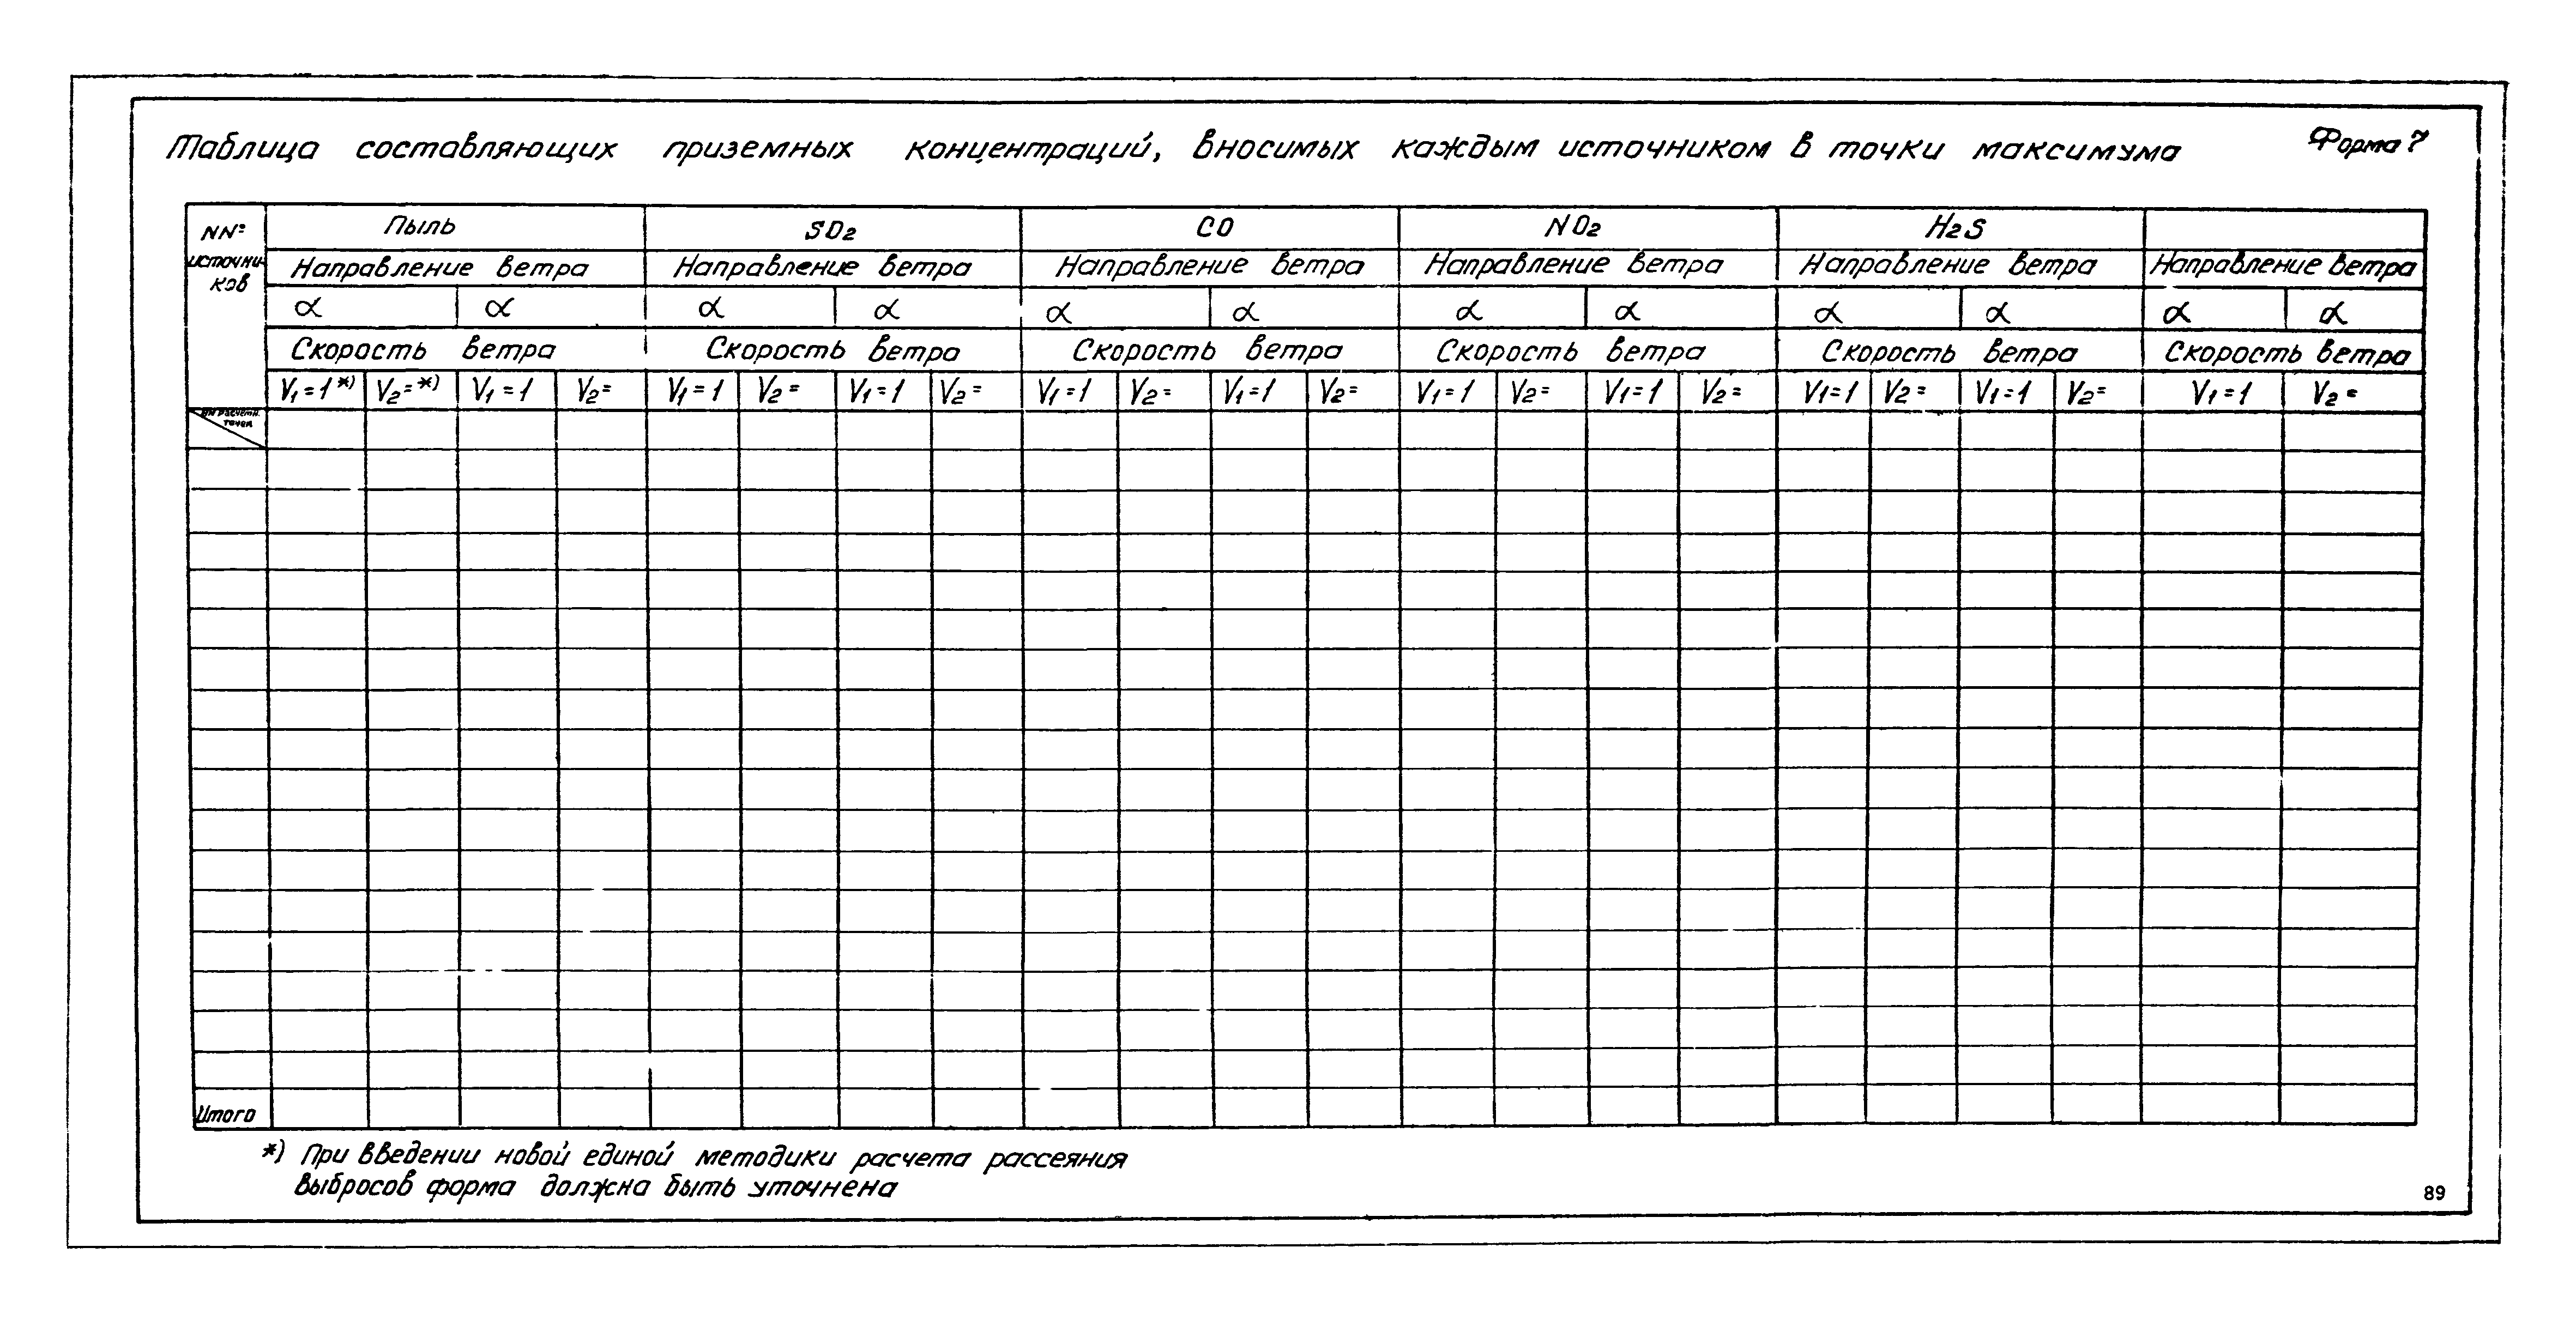 Таблица составляющих приземных концентраций, вносимых каждым источником в точки максимума
Форма 7
NNº источни- ков
Пыль SO2 CO NO2 H2S
Направление ветра Направление ветра Направление ветра Направление ветра Направление ветра Направление ветра
α α α α α α α α α α α α
Скорость ветра Скорость ветра Скорость ветра Скорость ветра Скорость ветра Скорость ветра
V1=1*) V2=*) V1=1 V2= V1=1 V2= V1=1 V2= V1=1 V2= V1=1 V2= V1=1 V2= V1=1 V2= V1=1 V2= V1=1 V2= V1=1 V2=
NN расчетн.
точек
Итого
*) При введении новой единой методики расчета рассеяния
выбросов форма должна быть уточнена
89